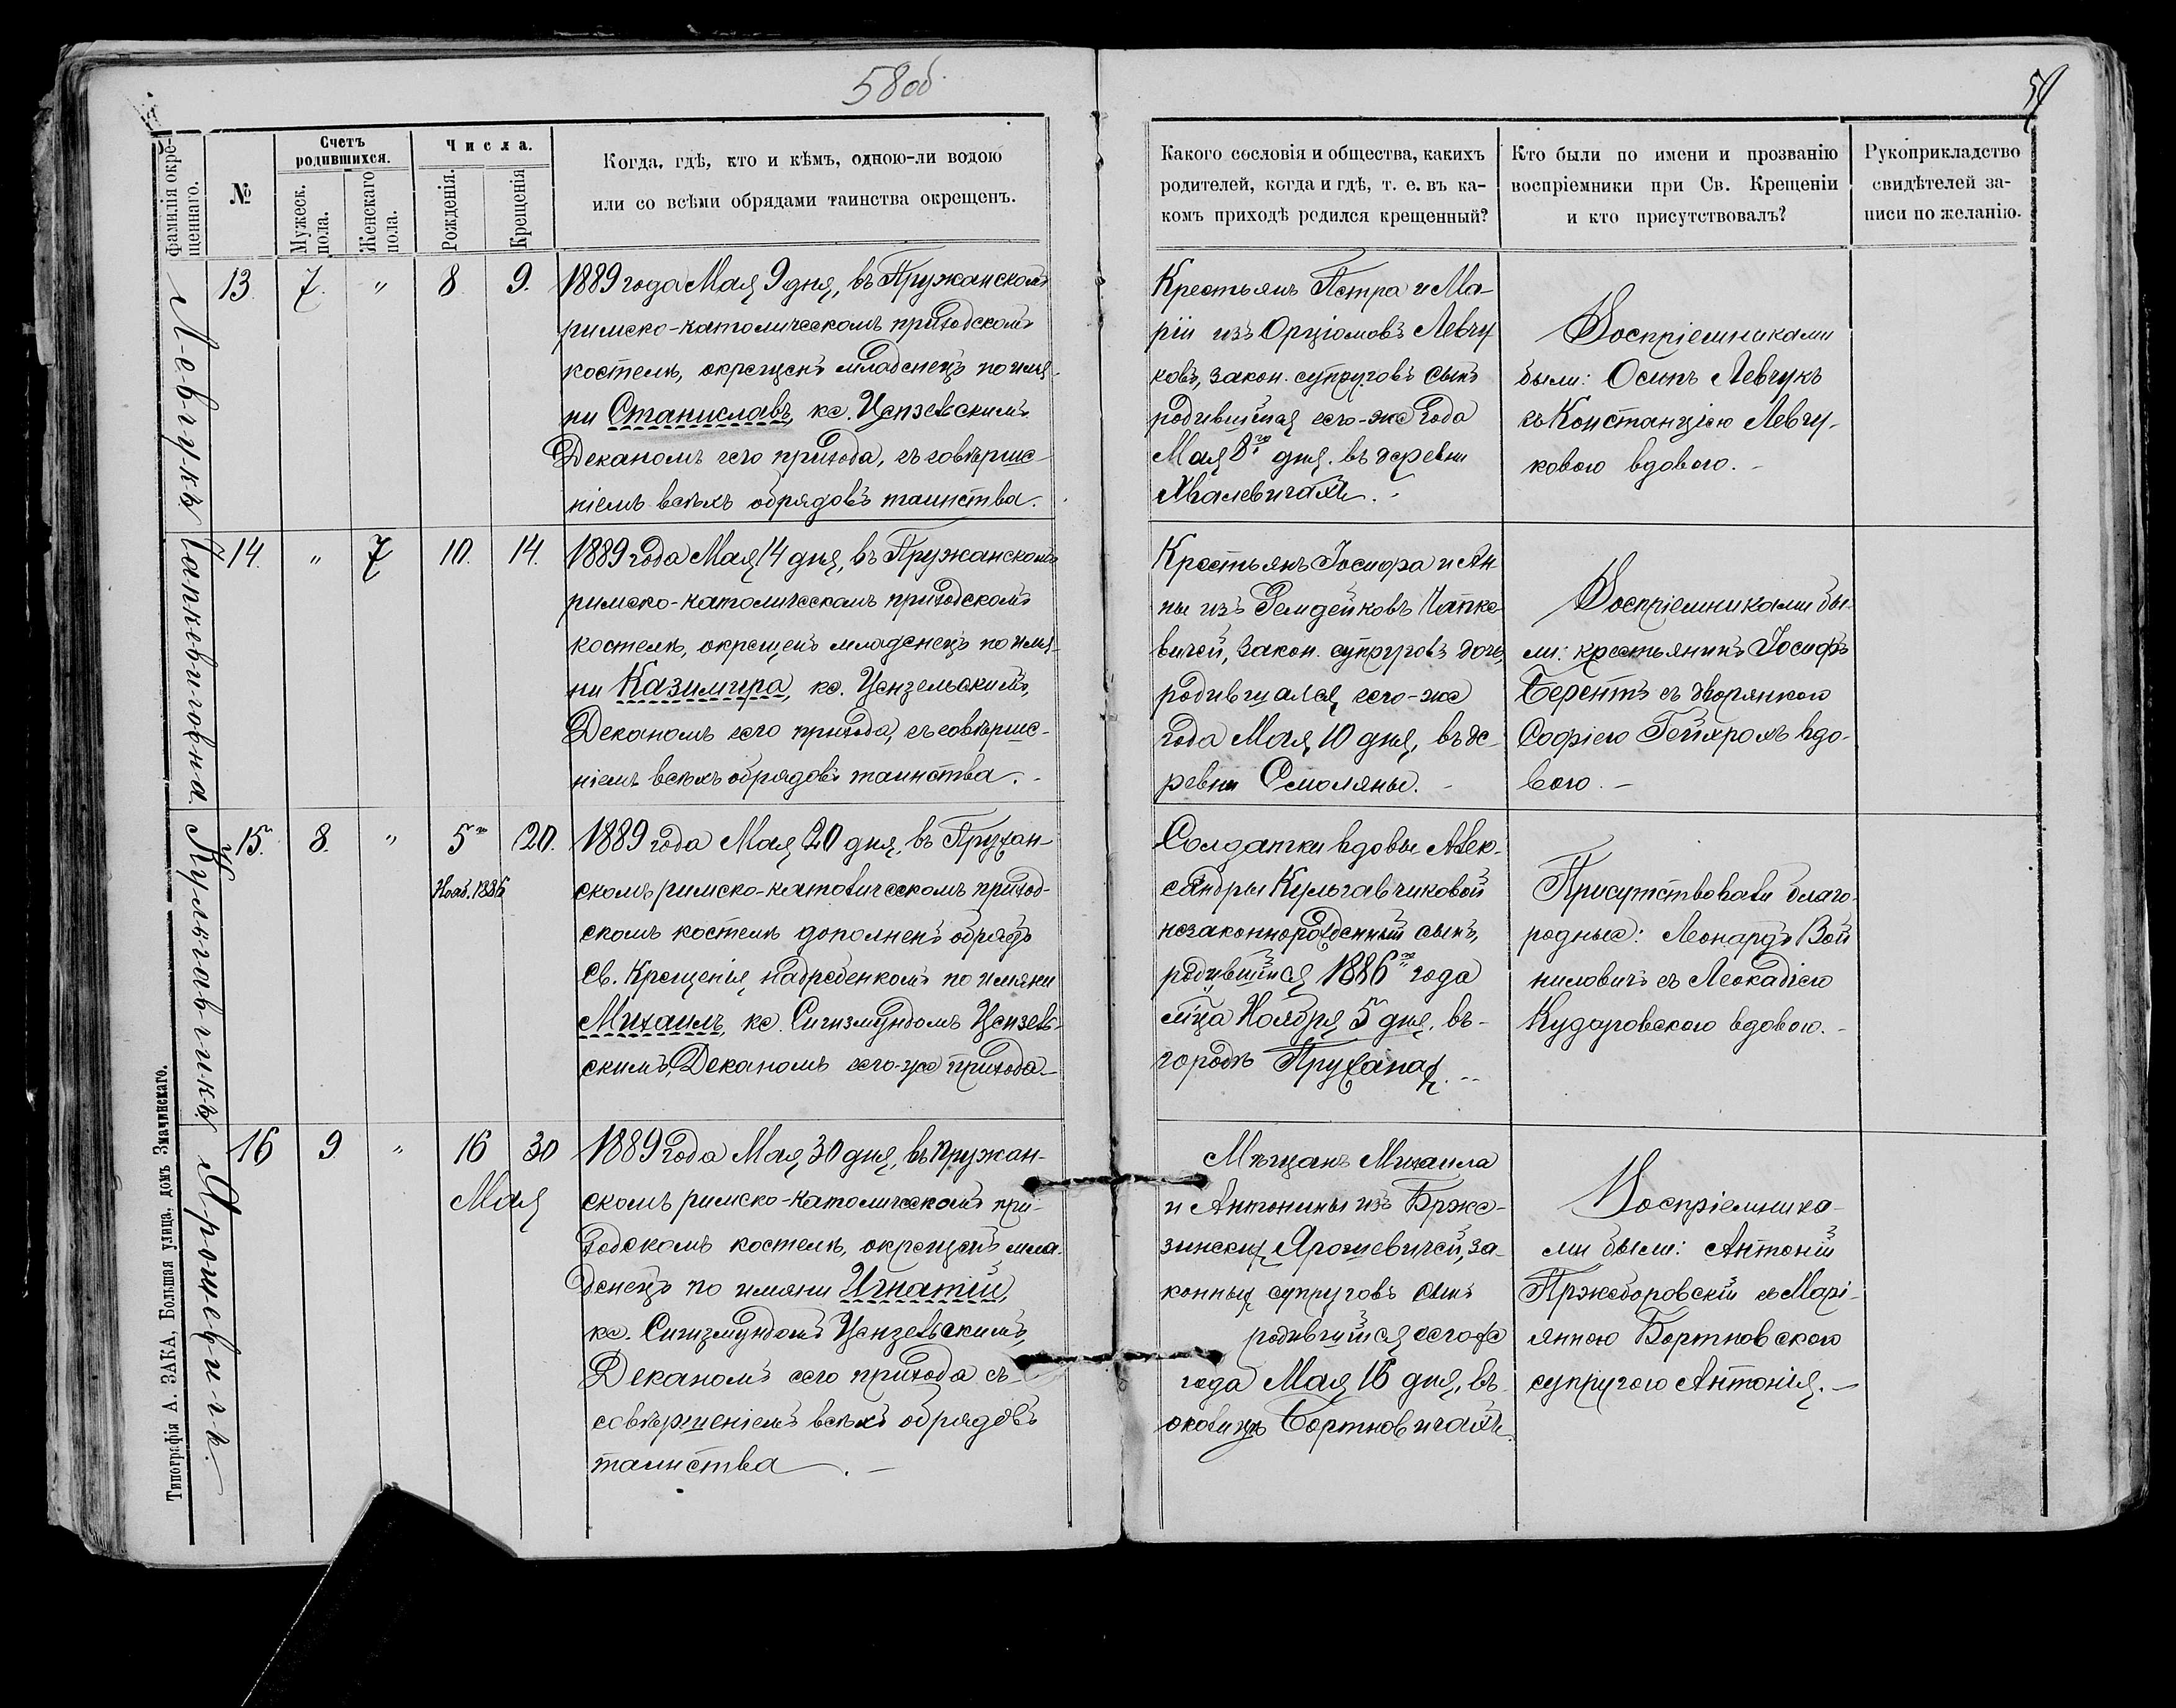 58 об
59
Фамилія окре-
щеннаго.
№
Счетъ
родившихся.
Мужеск.
пола.
Женскаго
пола.
Числа.
Рожденія.
Крещенія
Когда, гдѣ, кто и кѣмъ, одною-ли водою
или со всѣми обрядами таинства окрещенъ.
Какого сословія и общества, какихъ
родителей, когда и гдѣ, т. е. въ ка-
комъ приходѣ родился крещенный?
Кто были по имени и прозванію
воспріемники при Св. Крещеніи
и кто присутствовалъ?
Рукоприкладство
свидѣтелей за-
писи по желанію.
Левчукъ
13. 7. " 8 9.
1889 года Мая 9 дня, въ Пружанскомъ
римско-католическомъ приходскомъ
костелѣ, окрещенъ младенецъ по имя-
ни Станиславъ, кс. Цензельскимъ
Деканомъ сего прихода, съ совѣрше-
ніемъ всѣхъ обрядовъ таинства.
Крестьянъ Петра и Ма-
ріи изъ Орціомовъ Левчу
ковъ, закон. супруговъ сынъ
родившійся сего-же года
Мая 8го дня. въ деревни
Хвалевичахъ.
Воспріемниками
были: Осипъ Левчукъ
съ Констанціею Левчу-
ковою вдовою.
Чапкевичовна
14. " 7 10. 14.
1889 года Мая 14 дня, въ Пружанскомъ
римско-католическомъ приходскомъ
костелѣ, окрещенъ младенецъ по имя-
ни Казимира, кс. Цензельскимъ,
Деканомъ сего прихода, съ совѣрше-
ніемъ всѣхъ обрядовъ таинства.
Крестьянъ Іосифа и Ан-
ны изъ Чапке
вичей, закон. супруговъ дочь,
родившаяся сего-же
года Мая 10 дня, въ де-
ревни Смоляны.
Воспріемниками бы-
ли: крестьянинъ Іосифъ
Берентъ съ дворянкою
Софіею вдо-
вою.
Кульгавчикъ
15. 8. " 5го 20.
Нояб. 1886
1889 года Мая 20 дня, въ Пружан-
скомъ римско-католическомъ приход-
скомъ костелѣ дополненъ обрядъ
св. Крещенія, надребенкомъ по имяни
Михаилъ, кс. Сигизмундомъ Цензель-
скимъ, Деканомъ сего-же прихода
Солдатки вдовы Алек-
сандры Кульгавчиковой
незаконнорожденный сынъ,
родившійся 1886го года
мѣца Ноября 5 дня, въ-
городѣ Пружанах.
Присутствовали благо-
родные: Леонардъ Вой
ниловичъ съ Леокадіею
Кударовскою вдовою.
Ярошевичъ.
16 9. " 16 30
Мая
1889 года Мая 30 дня, въ Пружан-
скомъ римско-католическомъ при-
ходскомъ костелѣ, окрещенъ мла-
денецъ по имяни Игнатій,
кс. Сигизмундомъ Цензельскимъ,
Деканомъ сего прихода съ
совѣршеніемъ всѣхъ обрядовъ
таинства.
Мѣщанъ Михаила
и Антонины изъ Брже-
зинских Ярошевичей, за-
конных супруговъ сынъ
родившійся сего же
года Мая 16 дня, въ
околицѣ Бортновичахъ.
Воспріемника-
ми были: Антоній
Пржеборовскій съ Марі-
янною Бортновскою
супругою Антонія.
Типографія А. ЗАКА, Большая улица, домъ Значинскаго.